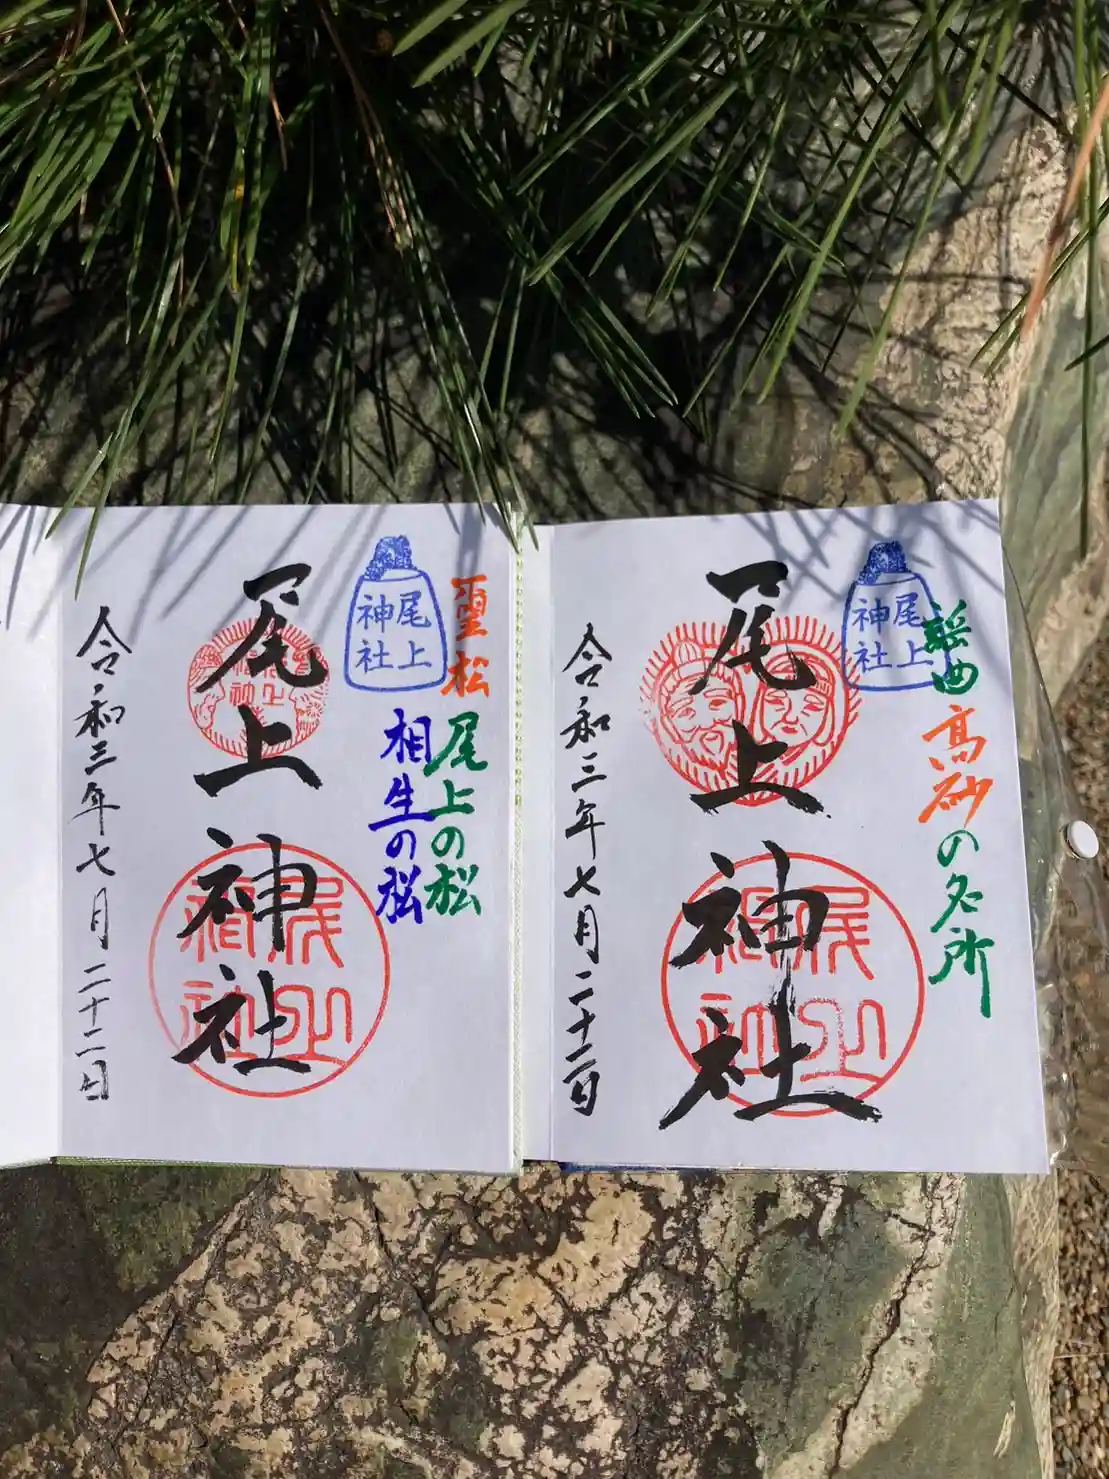 謡曲 高砂の名所
尾上
神社
尾上神社
尾上
神社
令和三年七月二十二日
霊松 尾上の松
相生の松
尾上
神社
尾上神社
尾上
神社
令和三年七月二十二日